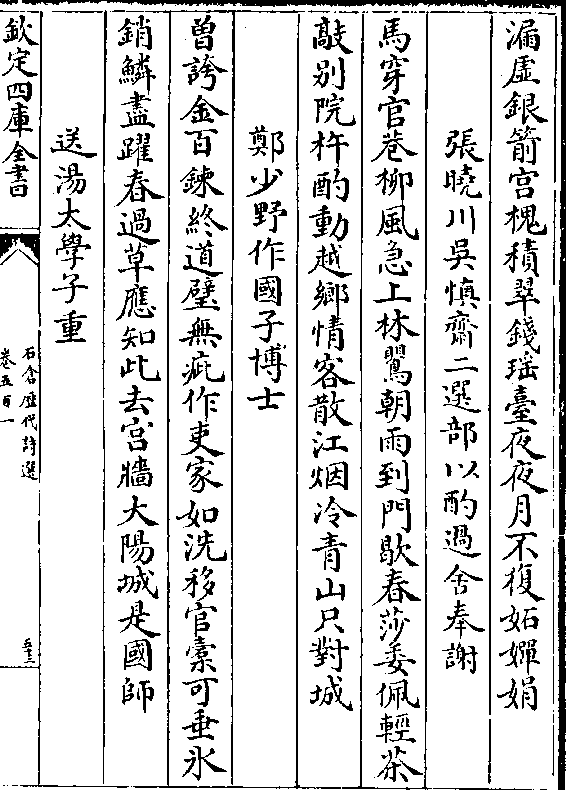 漏虛銀箭宮槐積翠錢瑶臺夜夜月不復妬嬋娟
張曉川吳慎齋二選部以酌過舍奉謝
馬穿官巷柳風急上林鸎朝雨到門歇春莎委佩輕茶
敲别院杵酌動越鄉情客散江烟冷青山只對城
鄭少野作國子博士
曽誇金百鍊終道璧無疵作吏家如洗移官橐可垂氷
銷鱗盡躍春過草應知此去宫牆大陽城是國師
送湯太學子重
欽定四庫全書
石倉歴代詩選
卷五百一
五十三